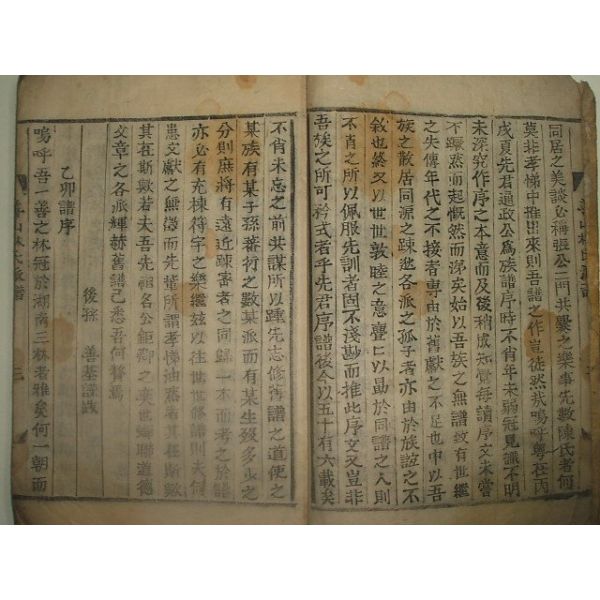 同居之美談必稱張公二門共爨之樂事先數陳氏者何
莫非孝悌中推出來則吾譜之作豈徒然哉嗚呼粤在丙
戌夏先君通政公爲族譜序時不肖年未弱冠見識不明
未深究作序之本意而及後稍成知覺每讀序文未嘗
不蹶然而起慨然而涕矣始以吾族之無譜敘有世繼
之失傳年代之不接者專由於舊獻之不足也中以吾
族之散居同源之疎遠各派之孤子者亦由於族誼之不
敘也終又以世世敦睦之意亹亹以勖於同譜之人則
不肖之所以佩服先訓者固不淺尠而推此序文又豈非
吾族之所可矜式者乎先君序譜後今以五十有六載矣
不肖未忘之前共謀所以踵先志修舊譜之道使之
某族有某子孫蕃衍之數某派而有某生錢多少之
分則庶將有遠近疎害者之同歸一本而考之於譜
亦必有充棟符宇之樂繼玆以往世世修譜則夫何
患文獻之無徵而先輩所謂孝悌油然者其在斯歟
其在斯歟若夫吾先祖名公鉅卿之奕世蟬聯道德
文章之各派輝赫舊譜已悉吾何贅焉
後孫 善基謹識
乙卯譜序
嗚呼吾一善之林冠於湖南三林者雅矣何一朝而
善山林氏派譜 三